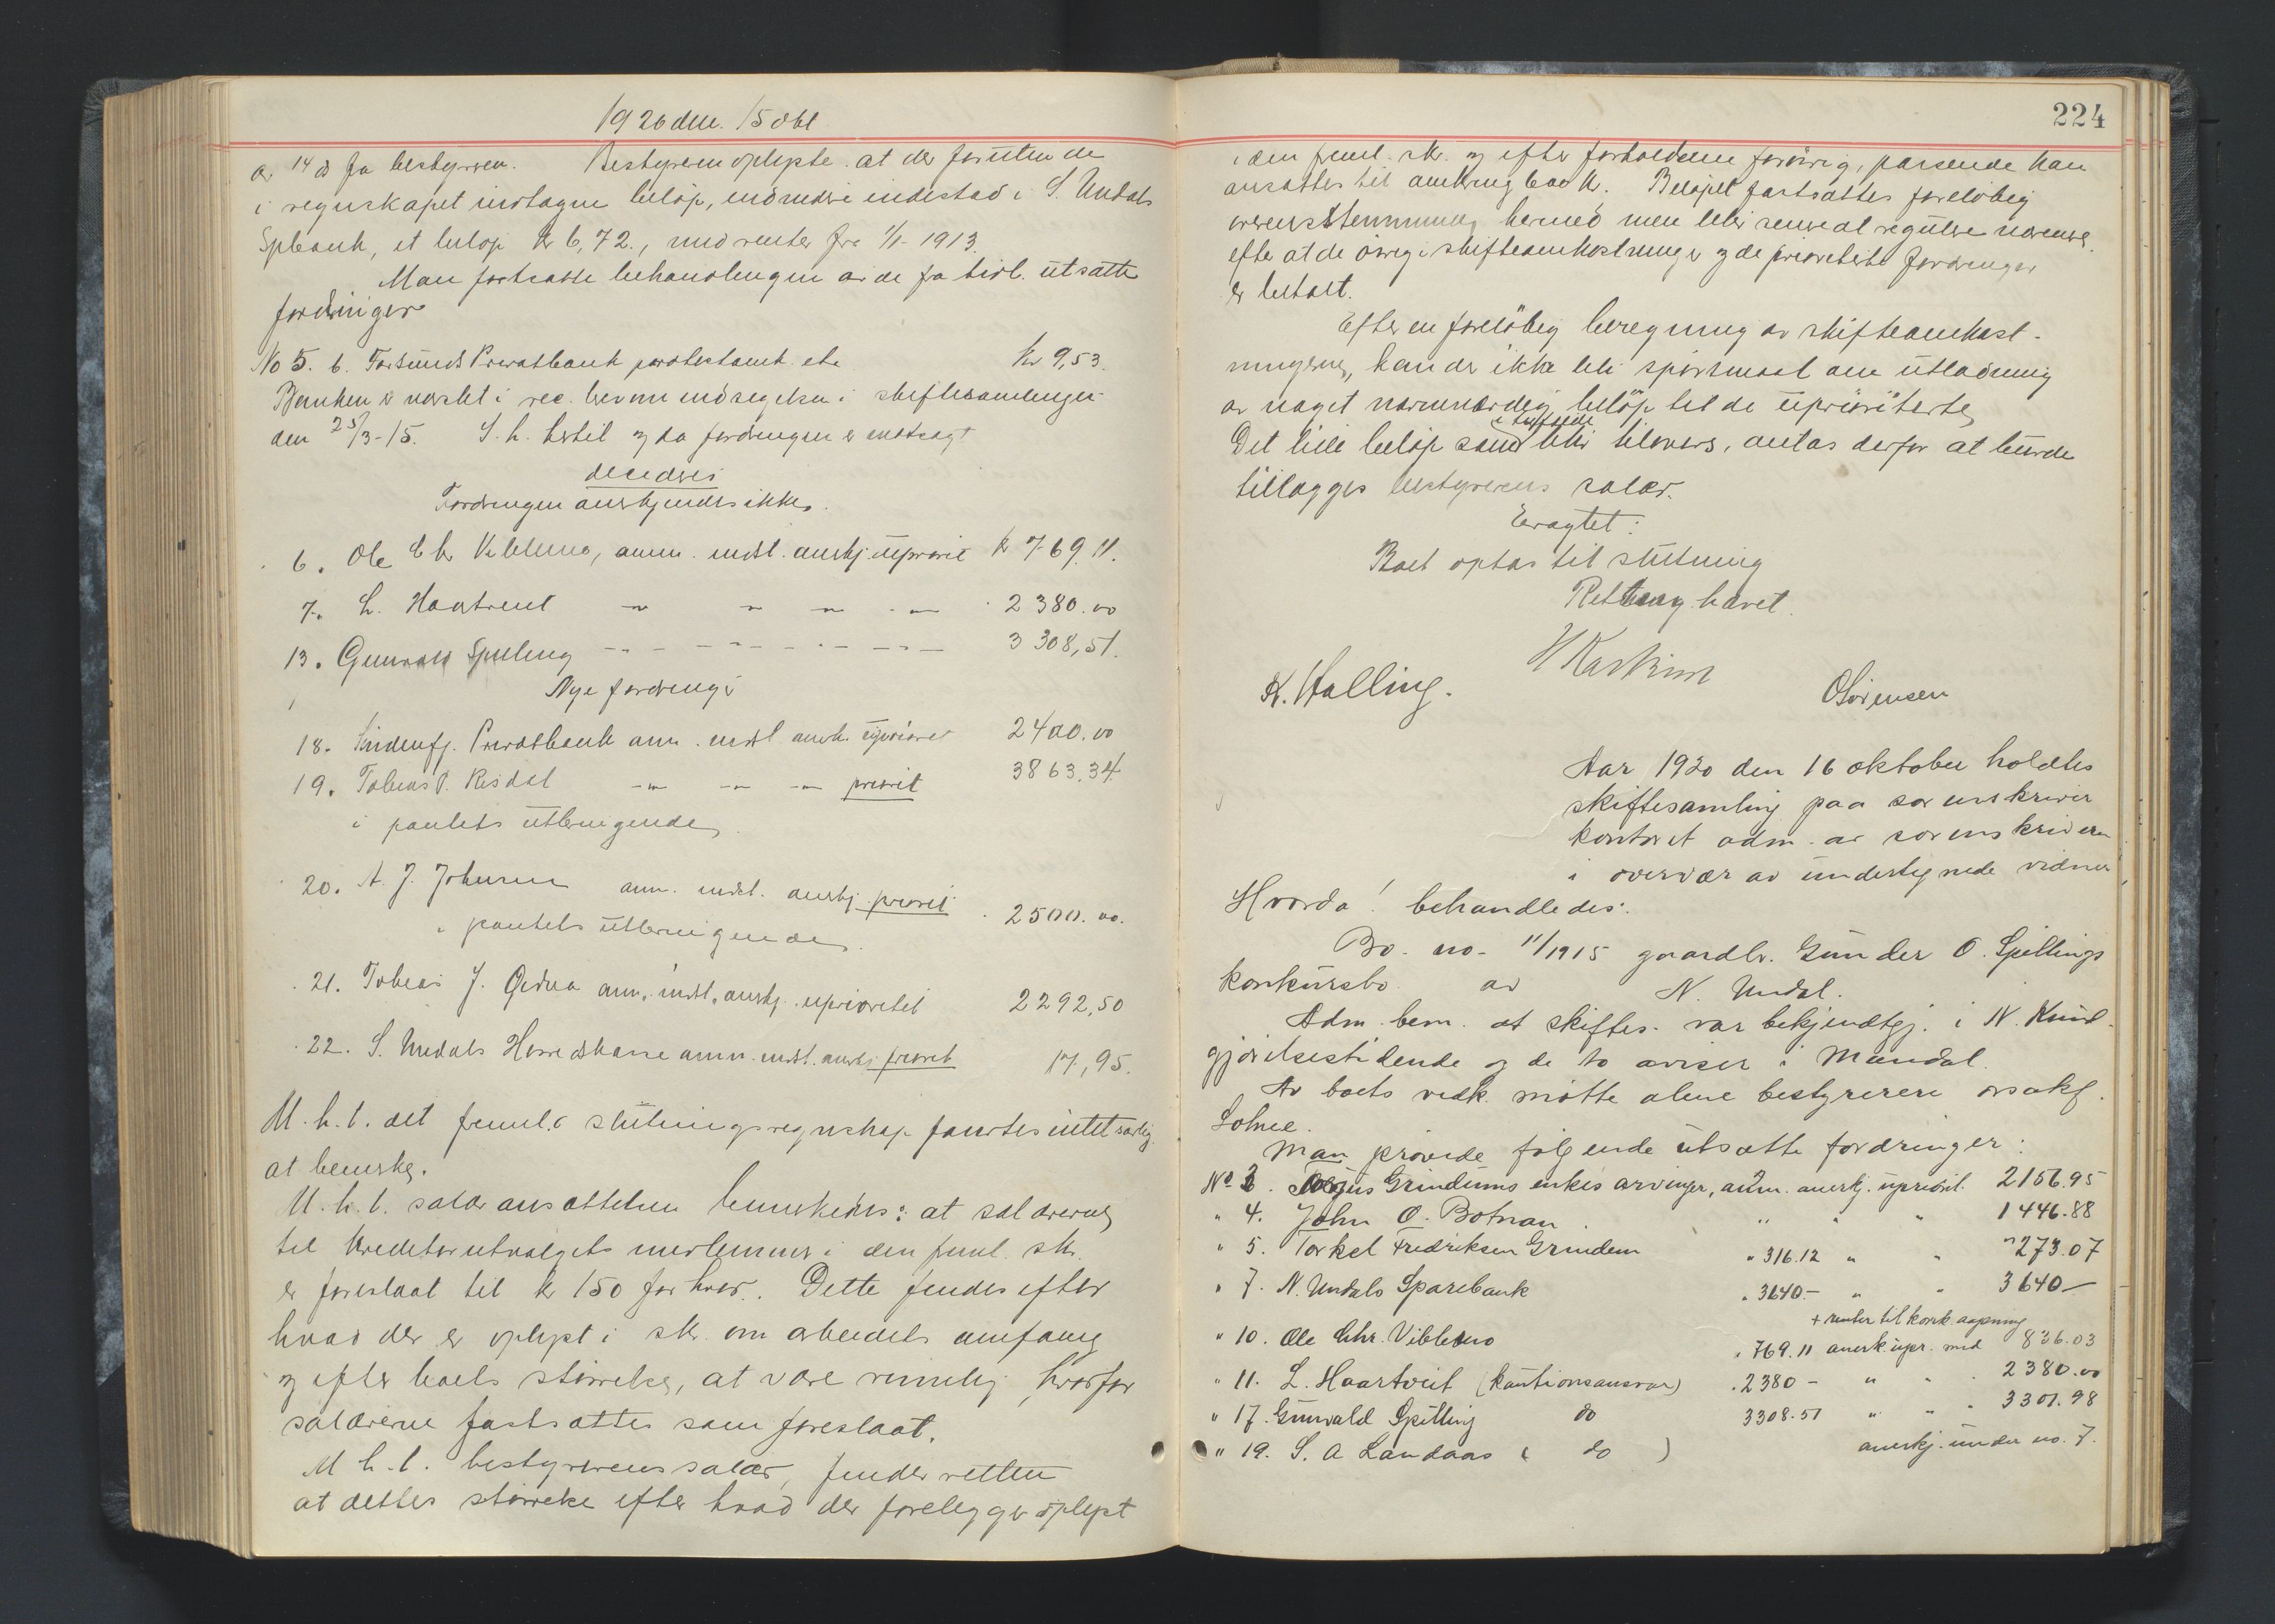 1920 den 15 okt
av 14 ds fra bestyreren. Bestyreren oplyste at der foruten de
i regnskapet indtagne beløp, endvidere indestod i S. Undals
Spbank, et beløp kr 6,72, med renter fra 1/1-1913.
Man fortsatte behandlingen av de fra tidl. utsatte
fordringer
No 5. b. Farsunds Privatbank protestomk. etc kr 9,53.
Banken er varslet i rec. brev om indsigelsen i skiftesamlingen
den 25/3-15. S. h. hertil og da fordringen er motsagt
decideres
Fordringen anerkjendes ikke.
6. Ole Chr Vibleme, anm. indst. anerkj. uprioit kr 769.11.
7. L. Haartveit 2380.00
13. Gunvald Spilling 3308,51.
Nye fordringer
18. Søndenfj. Privatbank anm. indst anerk. uprioritet 2400.00
19. Tobias T. Risdal priorit 3863.34
i pantets utbringende.
20. A. J. Johnsen anm. indst. anerkj. priorit 2500.00.
i pantets utbringende.
21. Tobias J. anm. indst. anerkj. uprioritet 2292,50
22. S. Undals Herredskasse anm. indst. anerkj. priorit 17,95.
M. h. t. det freml. slutningsregnskap fandtes intet særlig
at bemerke.
M. h. t. salæransættelsen bemerkedes: at salærerne
til kreditorutvalgets medlemmer i den freml. skr.
er foreslaat til kr 150 for hver. Dette findes efter
hvad der er oplyst i skr. om arbeidets omfang
og efter boets størrelse, at være rimelig, hvorfor
salærerne fastsættes som foreslaat.
M. h. t. bestyrerens salær, finder retten
at dettes størrelse efter hvad der foreligger oplyst
224
i den freml. skr. og efter forholdene forøvrig, passende kan
ansættes til omkring 600 kr. Beløpet fastsættes foreløbig
overensstemmende hermed men blir senere at regulere nærmere
efter at de øvrige skifteomkostninger og de prioriterte fordringer
er betalt.
Efter en foreløbig beregning av skifteomkost-
ningerne, kan der ikke bli spørsmaal om utlodning
av noget nævneværdig beløp til de uprioriterte
Det lille beløp som i tilfælde blir tilovers, antas derfor at burde
tillægges bestyrerens salær.
Eragtet:
Boet optas til slutning
Retten hævet.
K. Halling. OSørensen
Aar 1920 den 16 oktober holdtes
skiftesamling paa sorenskriver
kontoret adm. av sorenskriveren
i overvær av undertegnede vidner
Hvorda! behandledes:
Bo. no. 11/1915 gaardbr. Gunder O. Spillings
konkursbo av N. Undal.
Adm. bem. at skiftes. var bekjendtgj. i N. Kund-
gjørelsestidende og de to aviser i Mandal.
Av boets vedk. møtte alene bestyreren o.r.sakf.
Lohne.
Man prøvede følgende utsatte fordringer:
No 3. Grindums enkes arvinger, anm. anerkj. upriorit. 2156.95
" 4. John O. Botnan " " " 1446.88
" 5. Torkel Fredriksen Grindem " 316.12 " " 273.07
" 7. N. Undals Sparebank " 3640.- " " 3640 —
+ renter til konk. aapning
" 10. Ole Chr. Viblemo " 769.11 anerk. upr. med 836.03
" 11. L. Haartveit (kautionsansvar) " 2380 - " " " 2380.00
" 17. Gunvald Spilling do 3308.51 " " " 3301.98
" 19. S. A Landaas ( do ) anerkj. under no. 7.